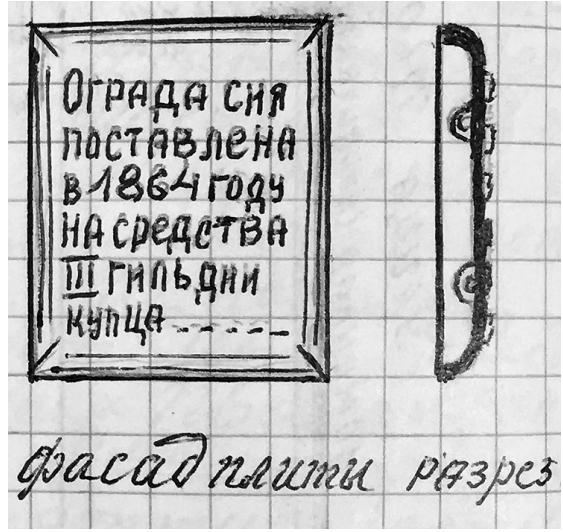 Ограда сия
поставлена
в 1864 году
на средства
III гильдии
купца _ _ _ _ _
фасад плиты разрез